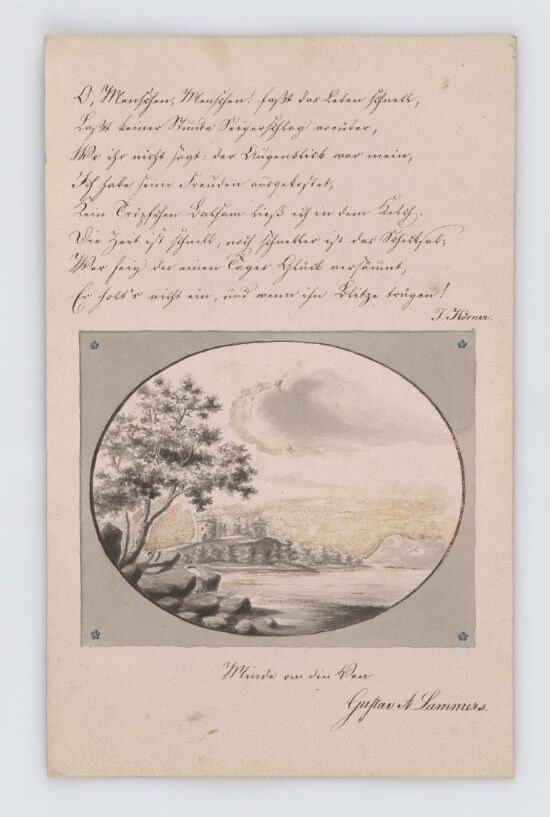 O, Menschen, Menschen! faßt das Leben schnell,
Laßt keiner Stunde Seigerschlag vorüber,
Wo ihr nicht sagt: der Augenblick war mein,
Ich habe seine Freuden ausgekostet,
Kein Tröpfchen Balsam ließ ich in dem Kelch.
Die Zeit ist schnell, noch schneller ist das Schicksal;
Wer feig des einen Tages Glück versäumt,
Er holt's nicht ein, und wenn ihn Blitze trügen!
T. Körner.
Minde om din Ven
Gustav A. Lammers.